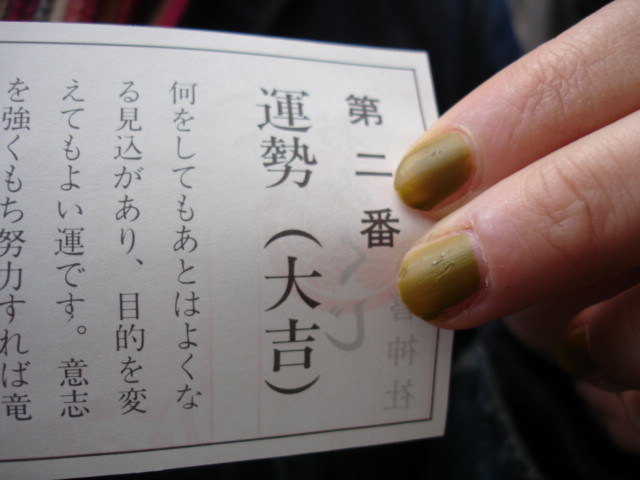 第二番
運勢（大吉）
何をしてもあとはよくな
る見込があり、目的を変
えてもよい運です。意志
を強くもち努力すれば竜
神社
くじ